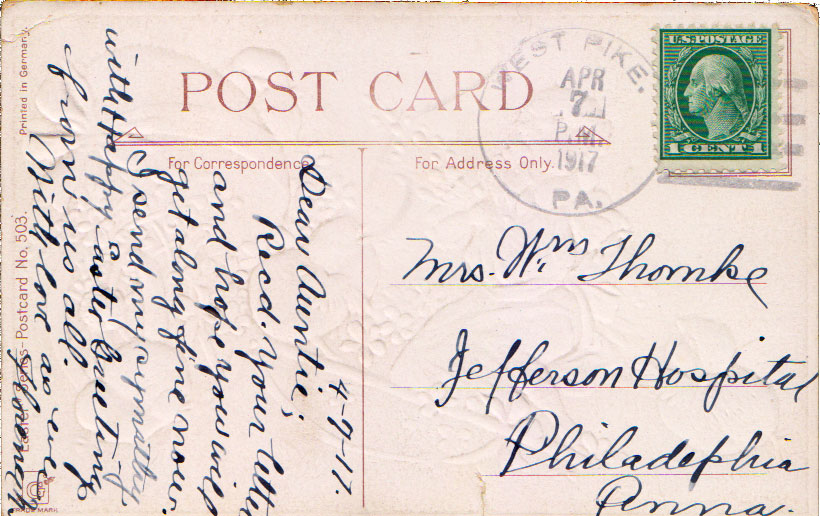 POST CARD
For Correspondence
For Address Only.
WEST PIKE.
APR
7
P.M.
1917
PA.
U.S. POSTAGE
1 CENT 1
Mrs. Wm Thomke
Jefferson Hospital
Philadephia
Penna.
4-7-17.
Dear Auntie;
Recd. your letter
and hope you will
get along fine now.
I send my sympathy
with Happy Easter Greeting
from us all.
With love as ever
Printed in Germany.
Easter Series-Postcard No. 503.
TRADE MARK